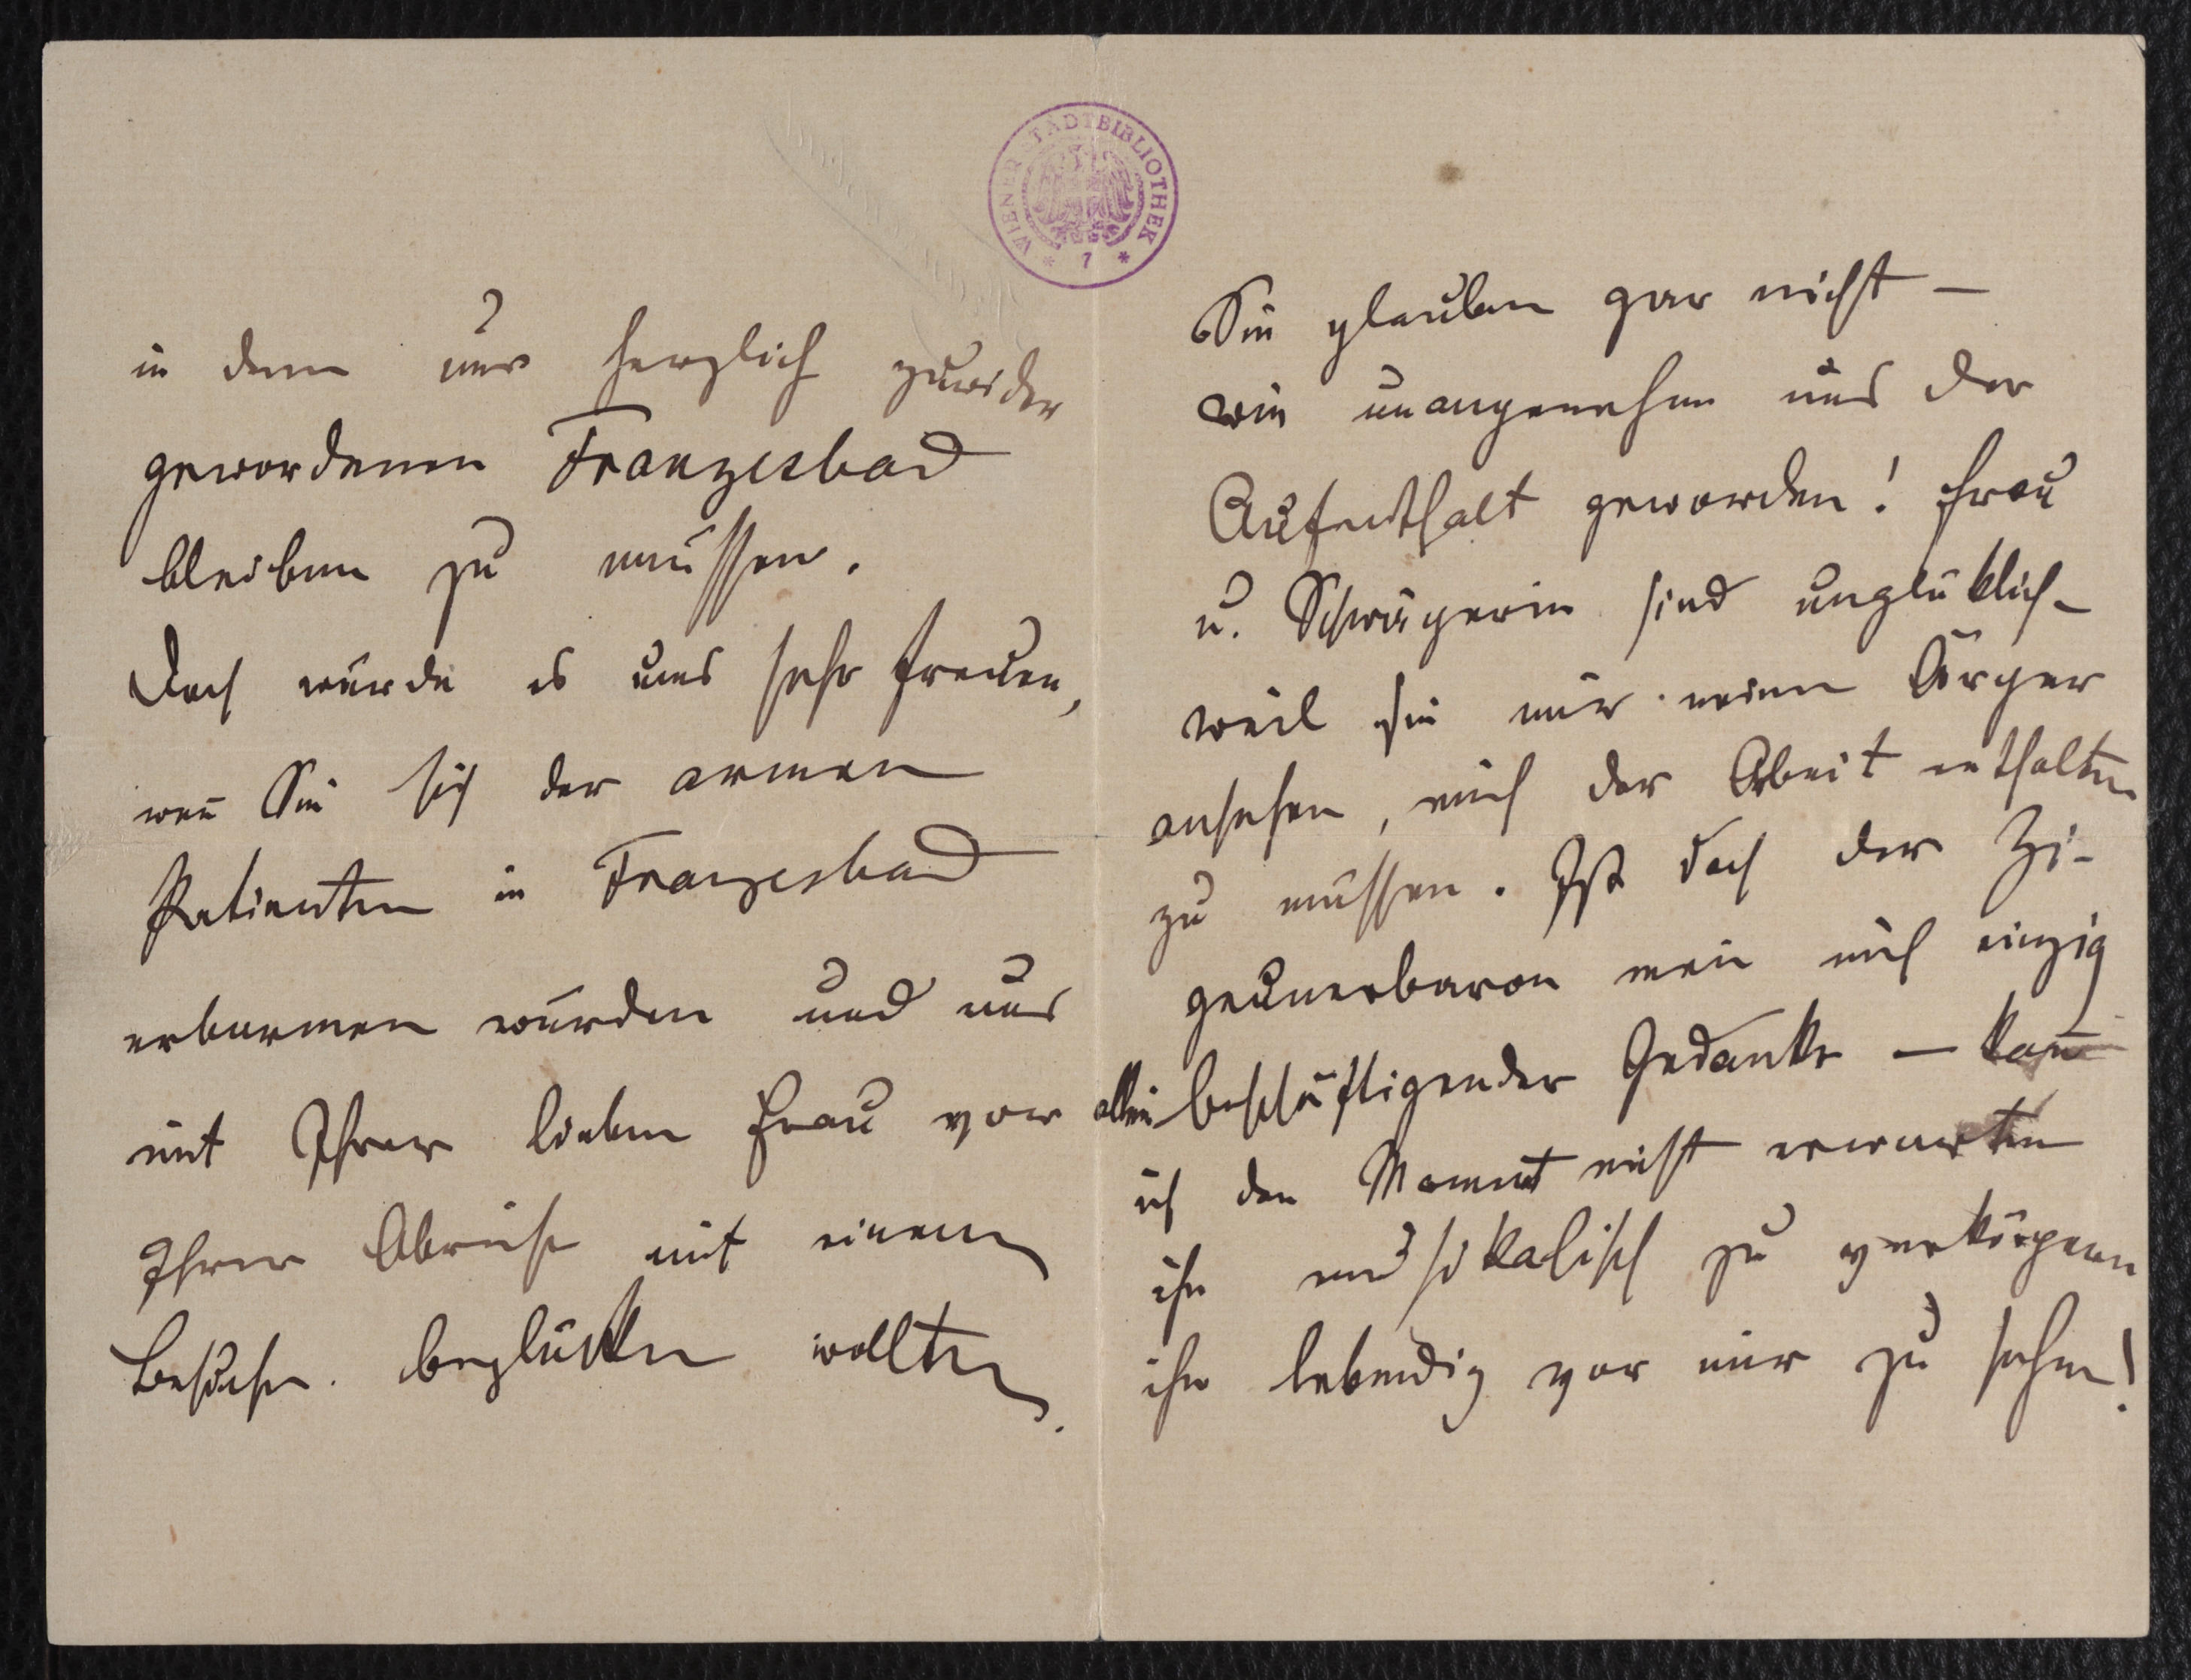 in dem mir herzlich zuwider
gewordenen Franzesbad
bleiben zu müssen.
Doch würde es uns sehr freuen,
wen̄ Sie sich der armen
Patienten in Franzesbad
erbarmen würden und uns
mit Ihrer lieben Frau vor
Ihrer Abreise mit einem
Besuche beglücken wollten.
WIENER STADTBIBLIOTHEK
* 7 *
Sie glauben gar nicht –
wie unangenehm uns der
Aufenthalt geworden! Frau
u. Schwägerin sind unglüklich –
weil sie mir meinen Ärger
ansehen, mich der Arbeit enthalten
zu müssen. Ist doch der Zi-
geunerbaron mein mich einzig
allein beschäftigender Gedanke – kan̄
ich den Moment nicht erwarten
ihn musikalisch zu verkörpern
ihn lebendig vor mir zu sehen!